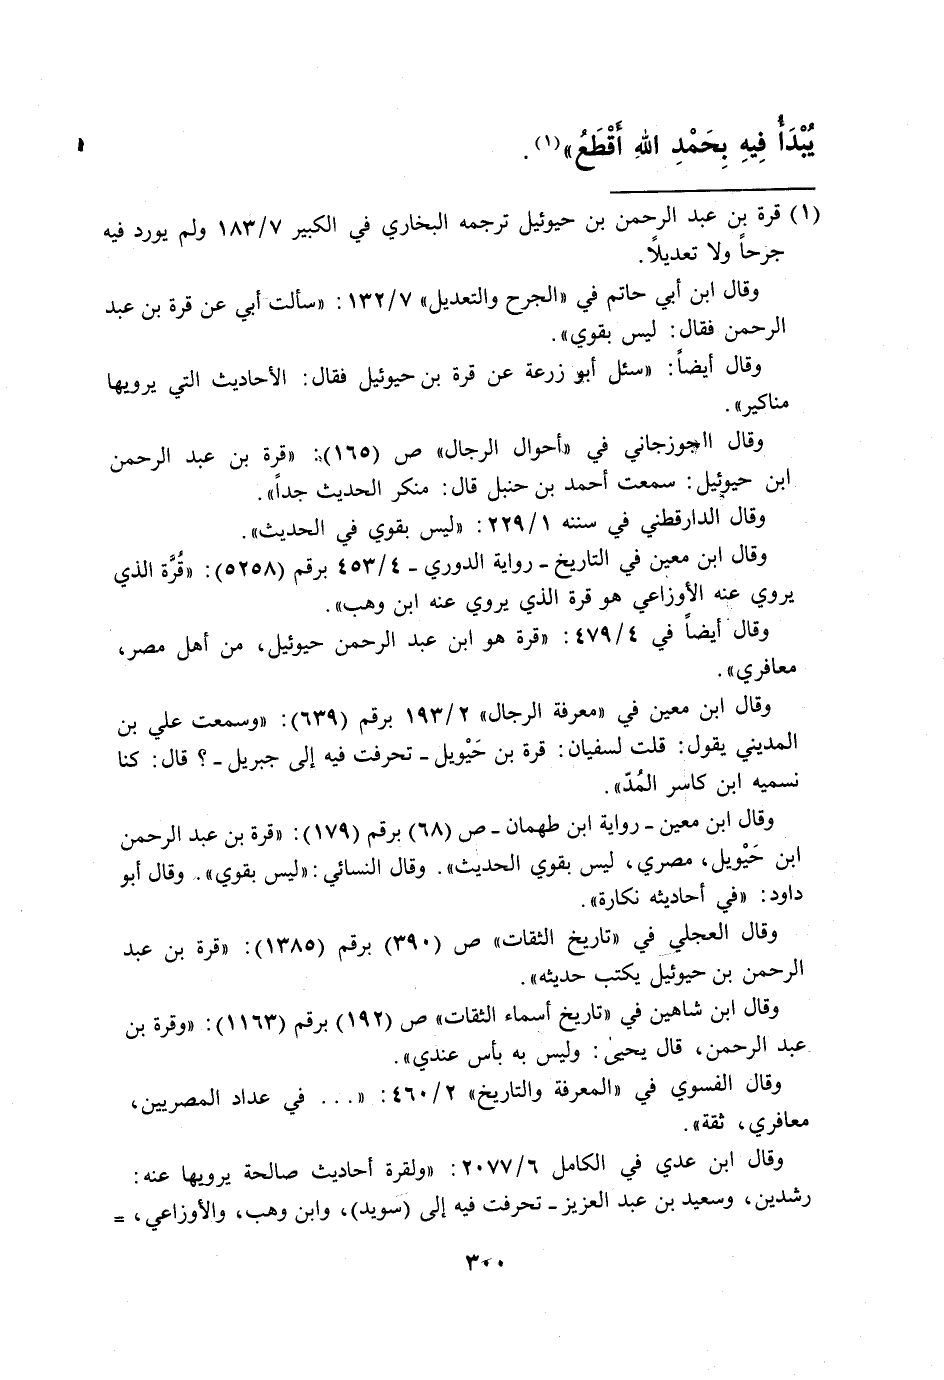 يُبْدَأُ فِيهِ بِحَمْدِ اللهِ أَقْطَعُ»(١).
(١) قرة بن عبد الرحمن بن حيوئيل ترجمه البخاري في الكبير ١٨٣/٧ ولم يورد فيه
جرحاً ولا تعديلاً.
وقال ابن أبي حاتم في «الجرح والتعديل» ١٣٢/٧: «سألت أبي عن قرة بن عبد
الرحمن فقال: ليس بقوي».
وقال أيضاً: «سئل أبو زرعة عن قرة بن حيوئيل فقال: الأحاديث التي يرويها
مناكير».
وقال الجوزجاني في «أحوال الرجال» ص (١٦٥): «قرة بن عبد الرحمن
ابن حيوئيل: سمعت أحمد بن حنبل قال: منكر الحديث جداً».
وقال الدارقطني في سننه ٢٢٩/١: «ليس بقوي في الحديث».
وقال ابن معين في التاريخ ـ رواية الدوري ـ ٤٥٣/٤ برقم (٥٢٥٨): «قُرَّة الذي
يروي عنه الأوزاعي هو قرة الذي يروي عنه ابن وهب».
وقال أيضاً في ٤٧٩/٤: «قرة هو ابن عبد الرحمن حيوئيل، من أهل مصر،
معافري».
وقال ابن معين في «معرفة الرجال» ١٩٣/٢ برقم (٦٣٩): «وسمعت علي بن
المديني يقول: قلت لسفيان: قرة بن حَيْويل ـ تحرفت فيه إلى جبريل ـ؟ قال: كنا
نسميه ابن كاسر المُدّ».
وقال ابن معين ـ رواية ابن طهمان ـ ص (٦٨) برقم (١٧٩): «قرة بن عبد الرحمن
ابن حَيْويل، مصري، ليس بقوي الحديث». وقال النسائي: «ليس بقوي». وقال أبو
داود: «في أحاديثه نكارة».
وقال العجلي في «تاريخ الثقات» ص (٣٩٠) برقم (١٣٨٥): «قرة بن عبد
الرحمن بن حيوئيل يكتب حديثه».
وقال ابن شاهين في «تاريخ أسماء الثقات» ص (١٩٢) برقم (١١٦٣): «وقرة بن
عبد الرحمن، قال يحيىٰ: وليس به بأس عندي».
وقال الفسوي في «المعرفة والتاريخ» ٤٦٠/٢: «... في عداد المصريين،
معافري، ثقة».
وقال ابن عدي في الكامل ٢٠٧٧/٦: «ولقرة أحاديث صالحة يرويها عنه:
رشدين، وسعيد بن عبد العزيز ـ تحرفت فيه إلى (سويد)، وابن وهب، والأوزاعي، =
٣٠٠